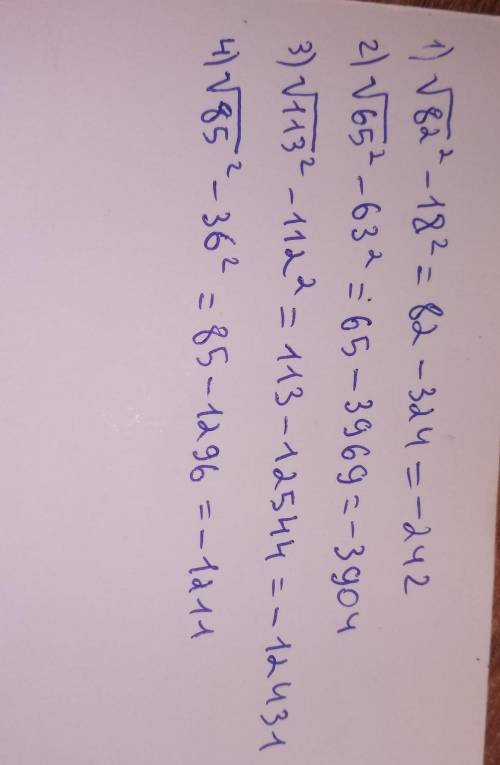 1) √82² - 18² = 82 - 324 = -242
2) √65² - 63² = 65 - 3969 = -3904
3) √113² - 112² = 113 - 12544 = -12431
4) √85² - 36² = 85 - 1296 = -1211